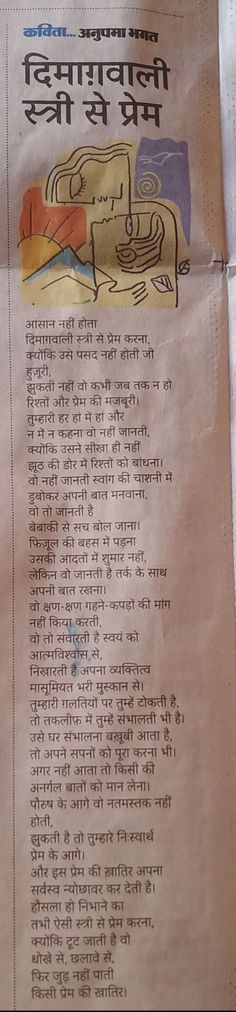 कविता... अनुपमा भगत
दिमाग़वाली
स्त्री से प्रेम
आसान नहीं होता
दिमाग़वाली स्त्री से प्रेम करना,
क्योंकि उसे पसंद नहीं होती जी
हुज़ूरी,
झुकती नहीं वो कभी जब तक न हो
रिश्तों और प्रेम की मजबूरी।
तुम्हारी हर हां में हां और
न में न कहना वो नहीं जानती,
क्योंकि उसने सीखा ही नहीं
झूठ की डोर में रिश्तों को बांधना।
वो नहीं जानती स्वांग की चाशनी में
डुबोकर अपनी बात मनवाना,
वो तो जानती है
बेबाकी से सच बोल जाना।
फिज़ूल की बहस में पड़ना
उसकी आदतों में शुमार नहीं,
लेकिन वो जानती है तर्क के साथ
अपनी बात रखना।
वो क्षण-क्षण गहने-कपड़ों की मांग
नहीं किया करती,
वो तो संवारती है स्वयं को
आत्मविश्वास से,
निखारती है अपना व्यक्तित्व
मासूमियत भरी मुस्कान से।
तुम्हारी ग़लतियों पर तुम्हें टोकती है,
तो तकलीफ़ में तुम्हें संभालती भी है।
उसे घर संभालना बख़ूबी आता है,
तो अपने सपनों को पूरा करना भी।
अगर नहीं आता तो किसी की
अनर्गल बातों को मान लेना।
पौरुष के आगे वो नतमस्तक नहीं
होती,
झुकती है तो तुम्हारे निःस्वार्थ
प्रेम के आगे।
और इस प्रेम की ख़ातिर अपना
सर्वस्व न्योछावर कर देती है।
हौसला हो निभाने का
तभी ऐसी स्त्री से प्रेम करना,
क्योंकि टूट जाती है वो
धोखे से, छलावे से,
फिर जुड़ नहीं पाती
किसी प्रेम की ख़ातिर।